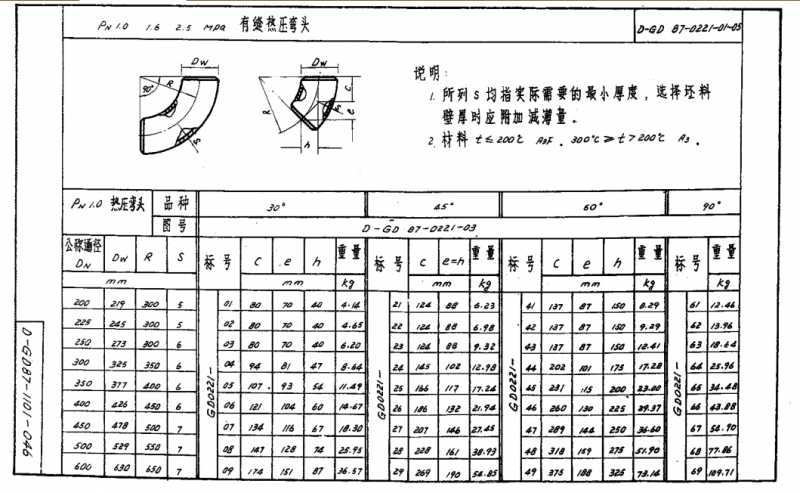 PN 1.0 1.6 2.5 MPa 有缝热压弯头
D-GD 87-0221-01-05
Dw Dw
90° R S
R C e S h
说明:
1. 所列 S 均指实际需要的最小厚度，选择坯料
壁厚时应附加减薄量。
2. 材料 t≤200℃ A3F . 300℃≥t>200℃ A3 .
PN 1.0 热压弯头 品种 30° 45° 60° 90°
图号 D-GD 87-0221-03
公称通径 DN Dw R S 标号 C e h 重量 标号 C e=h 重量 标号 C e h 重量 标号 重量
mm mm kg mm kg mm kg kg
GD0221- GD0221- GD0221-
200 219 300 5 01 80 70 40 4.14 21 124 88 6.23 41 137 87 150 8.29 61 12.46
225 245 300 5 02 80 70 40 4.65 22 124 88 6.98 42 137 87 150 9.29 62 13.96
250 273 300 6 03 80 70 40 6.20 23 124 88 9.32 43 137 87 150 12.41 63 18.64
300 325 350 6 04 94 81 47 8.64 24 145 102 12.98 44 202 101 175 17.28 64 25.96
350 377 400 6 05 107 93 54 11.49 25 166 117 17.24 45 231 115 200 23.00 65 34.48
400 426 450 6 06 121 104 60 14.67 26 186 132 21.94 46 260 130 225 29.37 66 43.88
450 478 500 7 07 134 116 67 18.30 27 207 146 27.45 47 289 144 250 36.60 67 54.90
500 529 550 7 08 147 128 74 25.95 28 228 161 38.93 48 318 159 275 51.90 68 77.86
600 630 650 7 09 174 151 87 36.57 29 269 190 54.85 49 375 188 325 73.14 69 109.71
D-GD87-1101-046